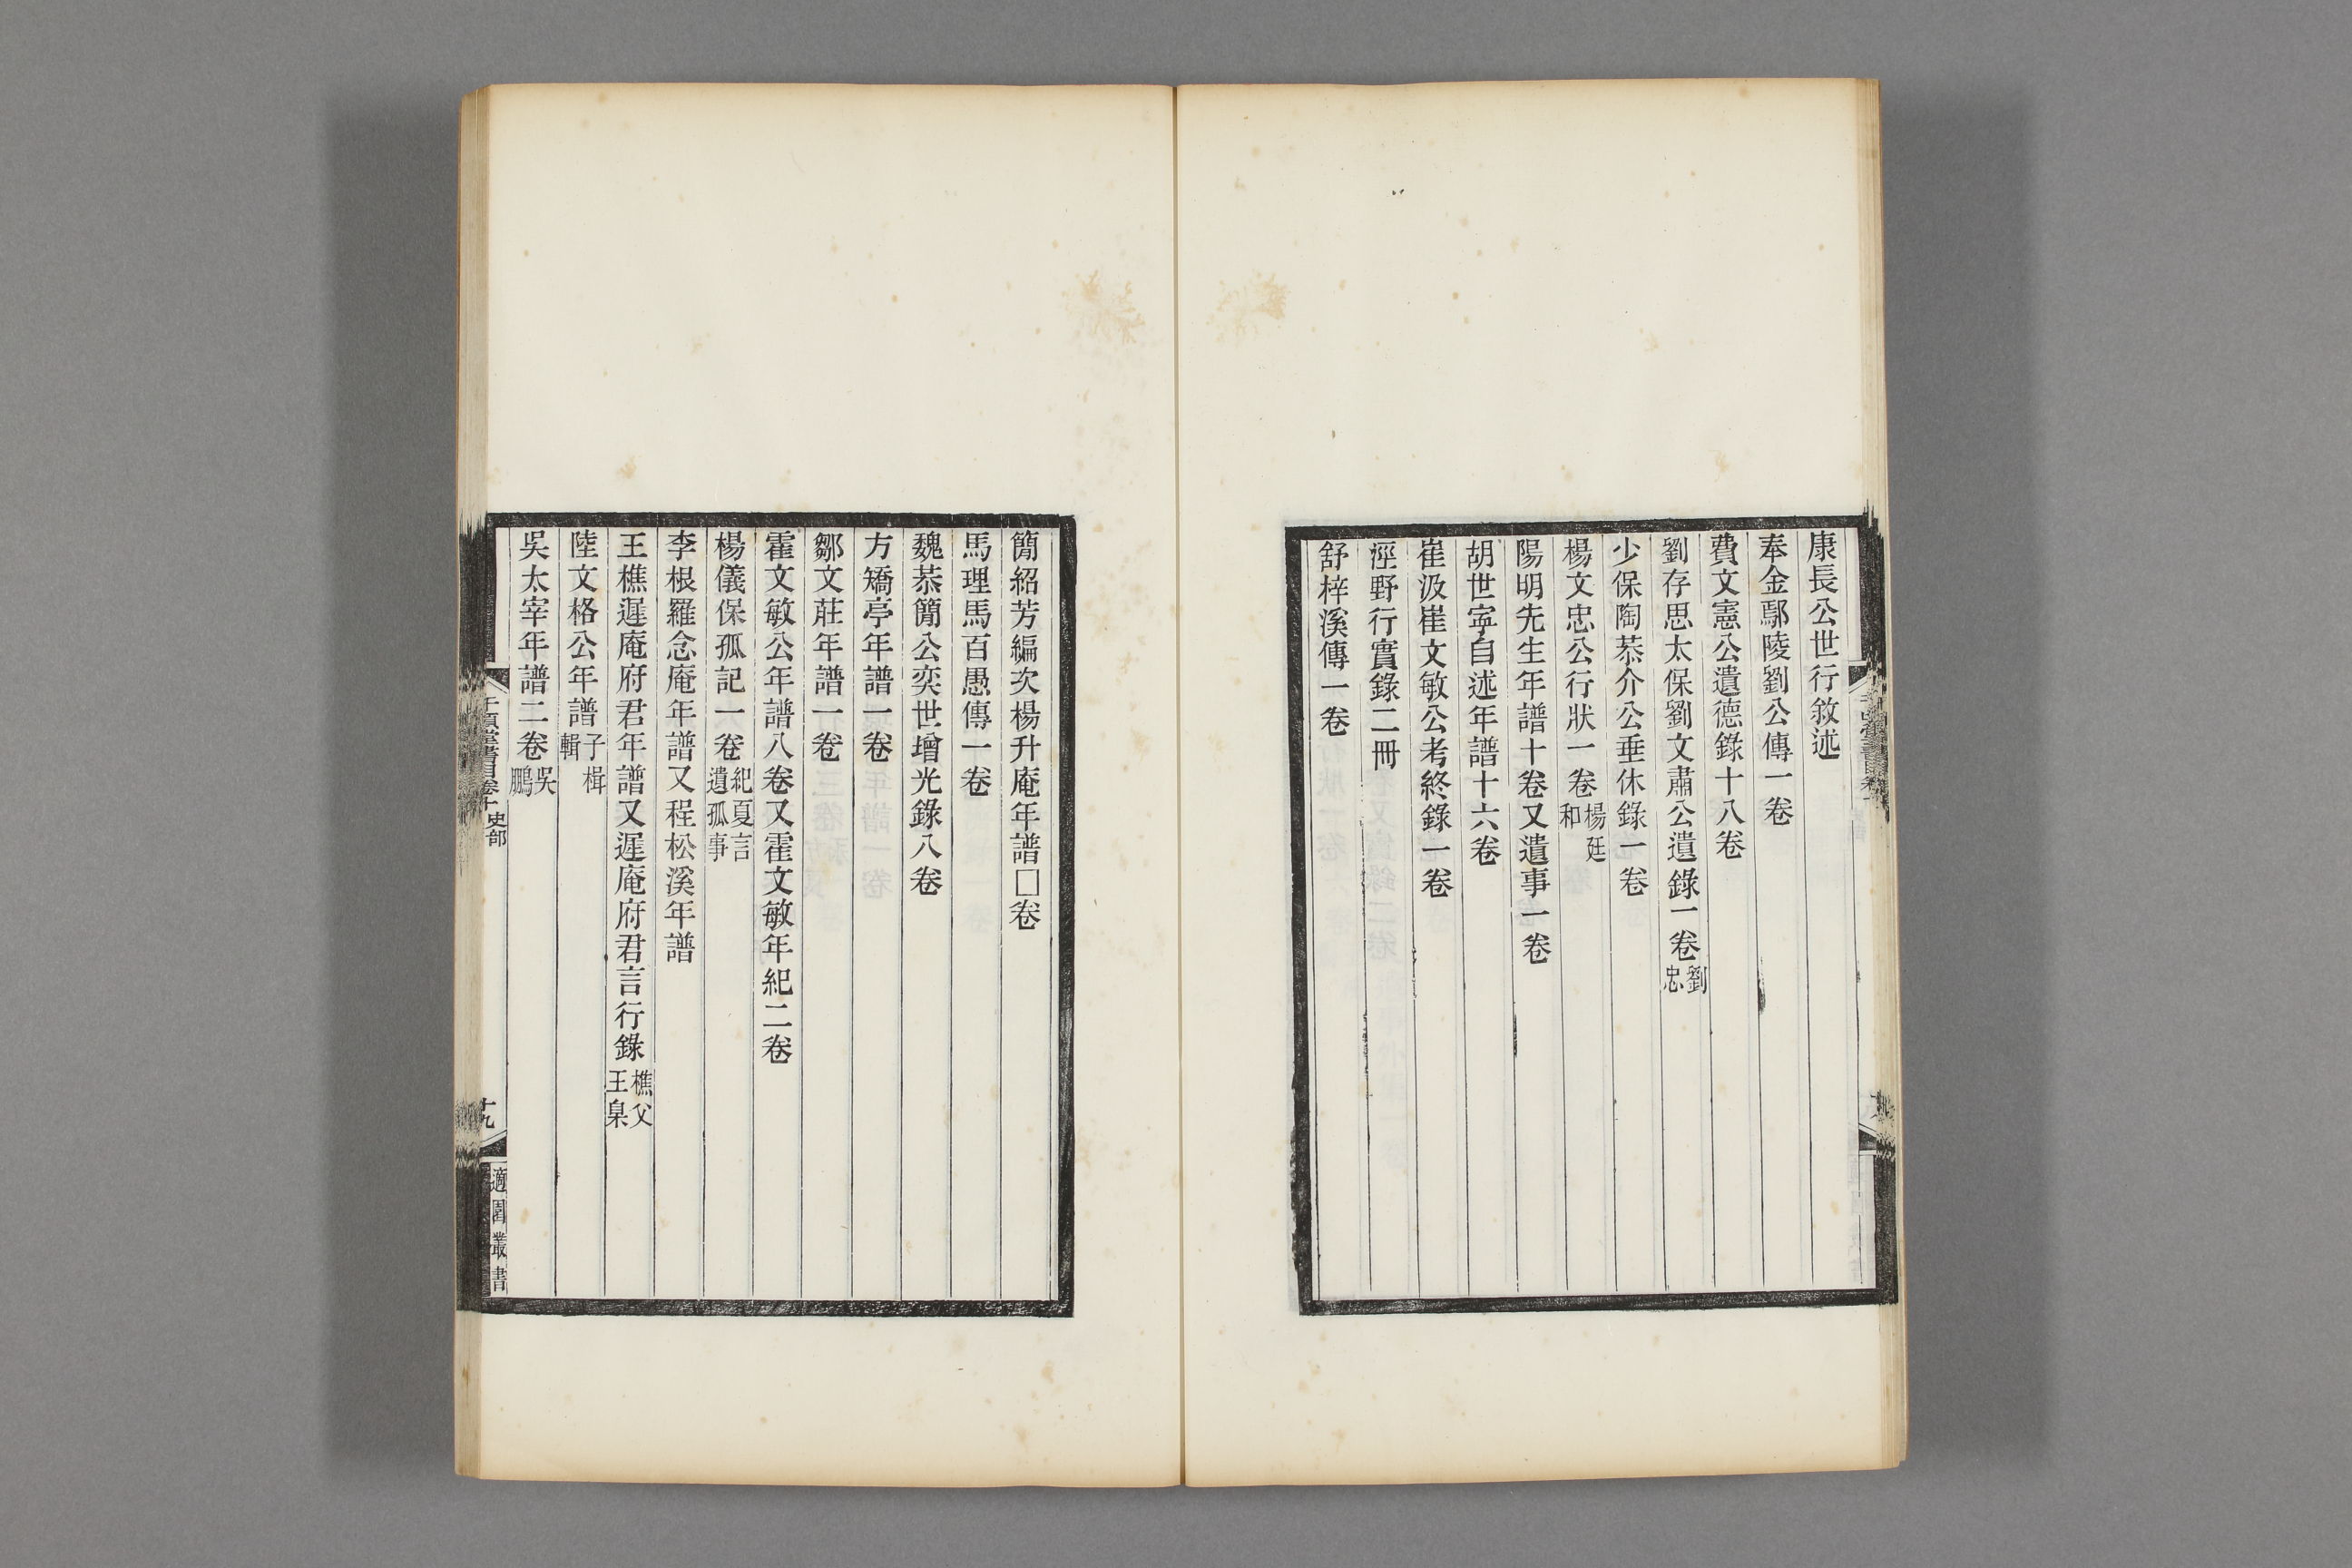 康長公世行敘述
奉金鄢陵劉公傳一卷
費文憲公遺德錄十八卷
劉存思太保劉文肅公遺錄一卷劉忠
少保陶恭介公垂休錄一卷
楊文忠公行狀一卷楊廷和
陽明先生年譜十卷又遺事一卷
胡世寧自述年譜十六卷
崔汲崔文敏公考終錄一卷
涇野行實錄二冊
舒梓溪傳一卷
簡紹芳編次楊升庵年譜□卷
馬理馬百愚傳一卷
魏恭簡公奕世增光錄八卷
方矯亭年譜一卷
鄒文莊年譜一卷
霍文敏公年譜八卷又霍文敏年紀二卷
楊儀保孤記一卷紀夏言遺孤事
李根羅念庵年譜又程松溪年譜
王樵遲庵府君年譜又遲庵府君言行錄樵父王臬
陸文格公年譜子楫輯
吳太宰年譜二卷吳鵬
千頃堂書目卷十 史部
十九
適園叢書